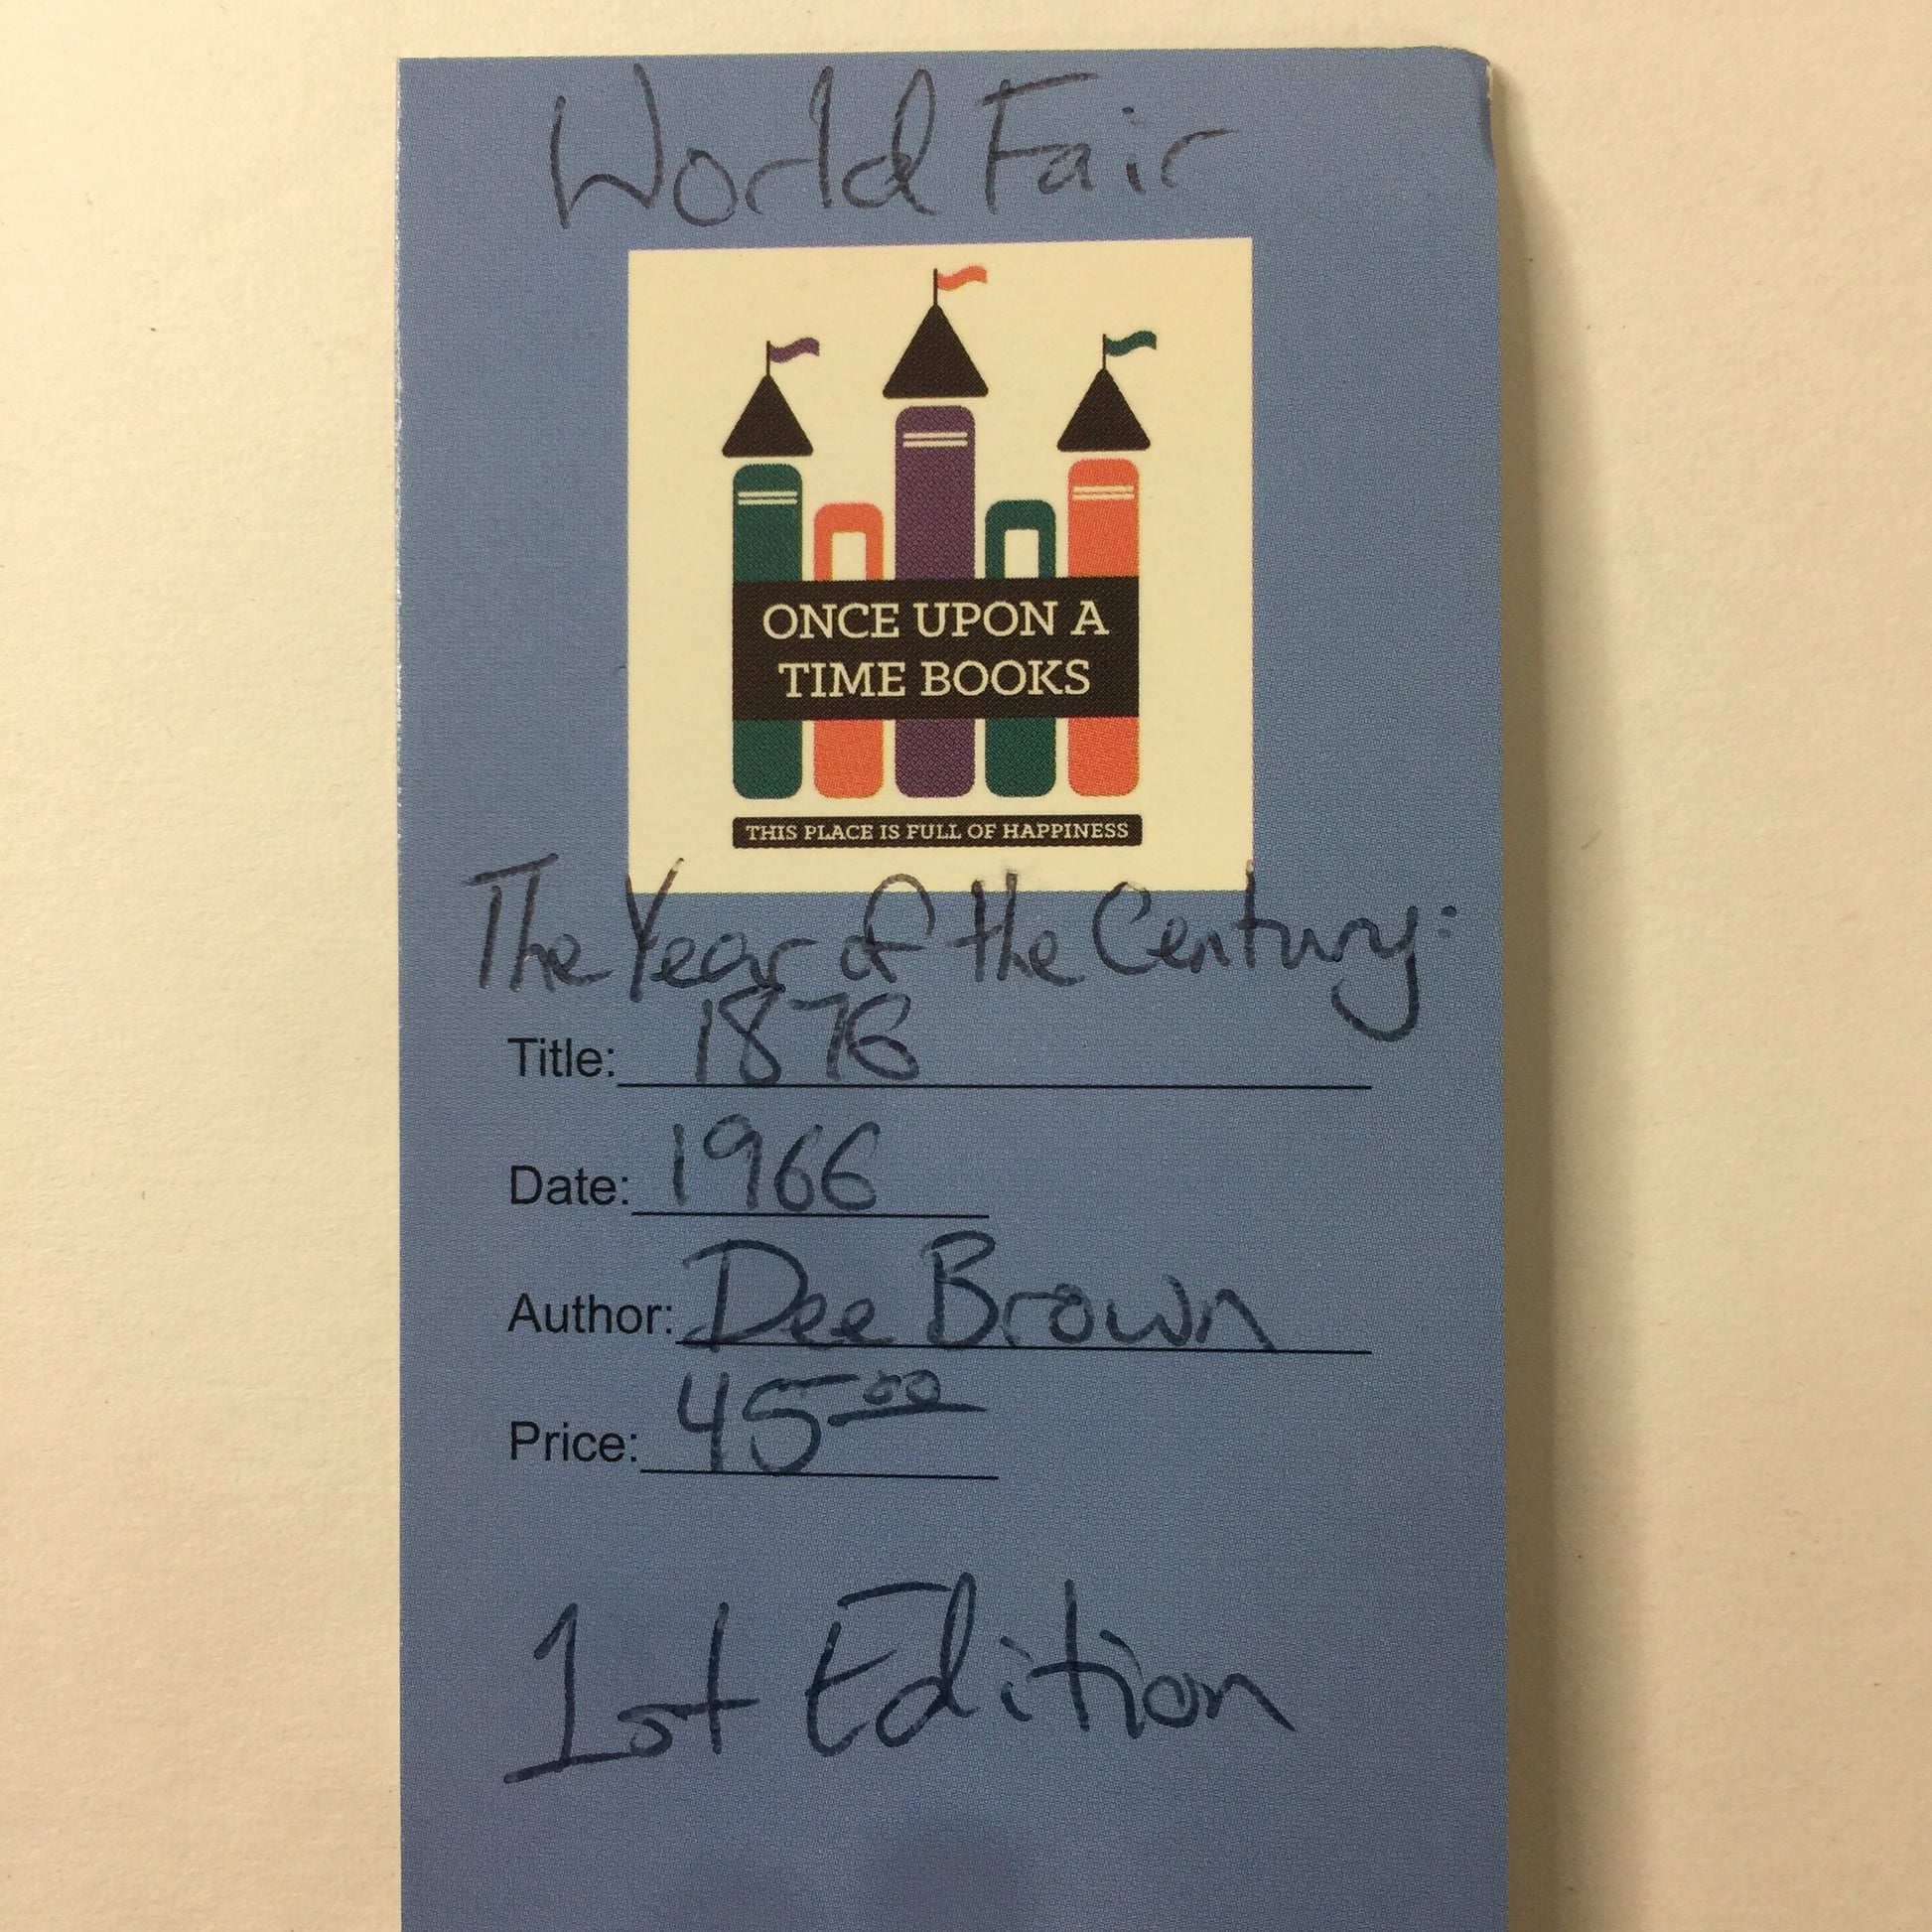 World Fair
ONCE UPON A
TIME BOOKS
THIS PLACE IS FULL OF HAPPINESS
The Year of the Century:
Title: 1876
Date: 1966
Author: Dee Brown
Price: 45.00
1st Edition